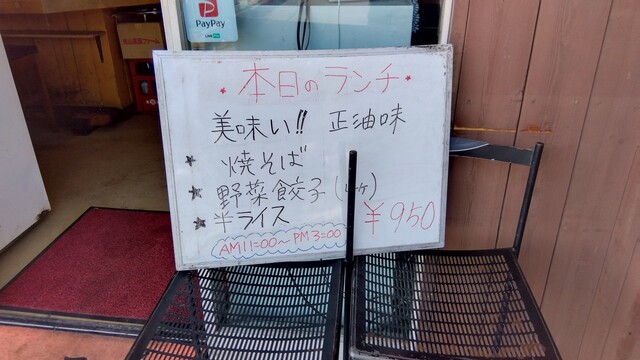 PayPay
* 本日のランチ *
美味い!! 正油味
★ 焼そば
★ 野菜餃子(4ヶ)
★ 半ライス ¥950
AM11=00〜PM3=00